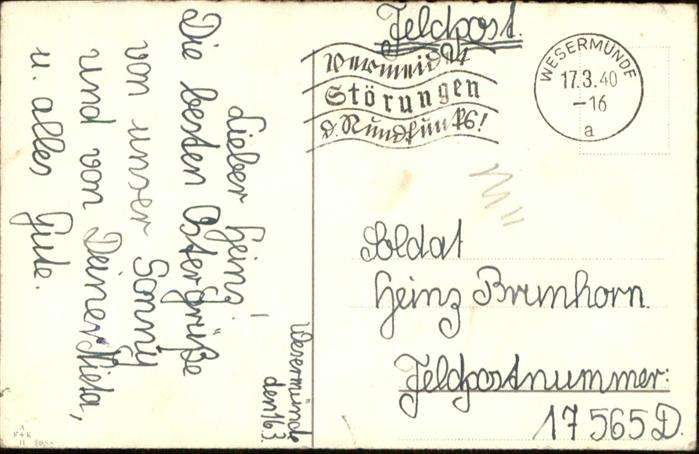 Feldpost.
Vermeidet
Störungen
d. Rundfunks!
WESERMÜNDE
17.3.40
-16
a
Wesermünde
den 16.3.
Lieber Heinz!
Die besten Ostergrüße
von unser Sonny
und von Deiner
u. alles Gute.
Soldat
Heinz Brunhorn.
Feldpostnummer:
17 565 D.